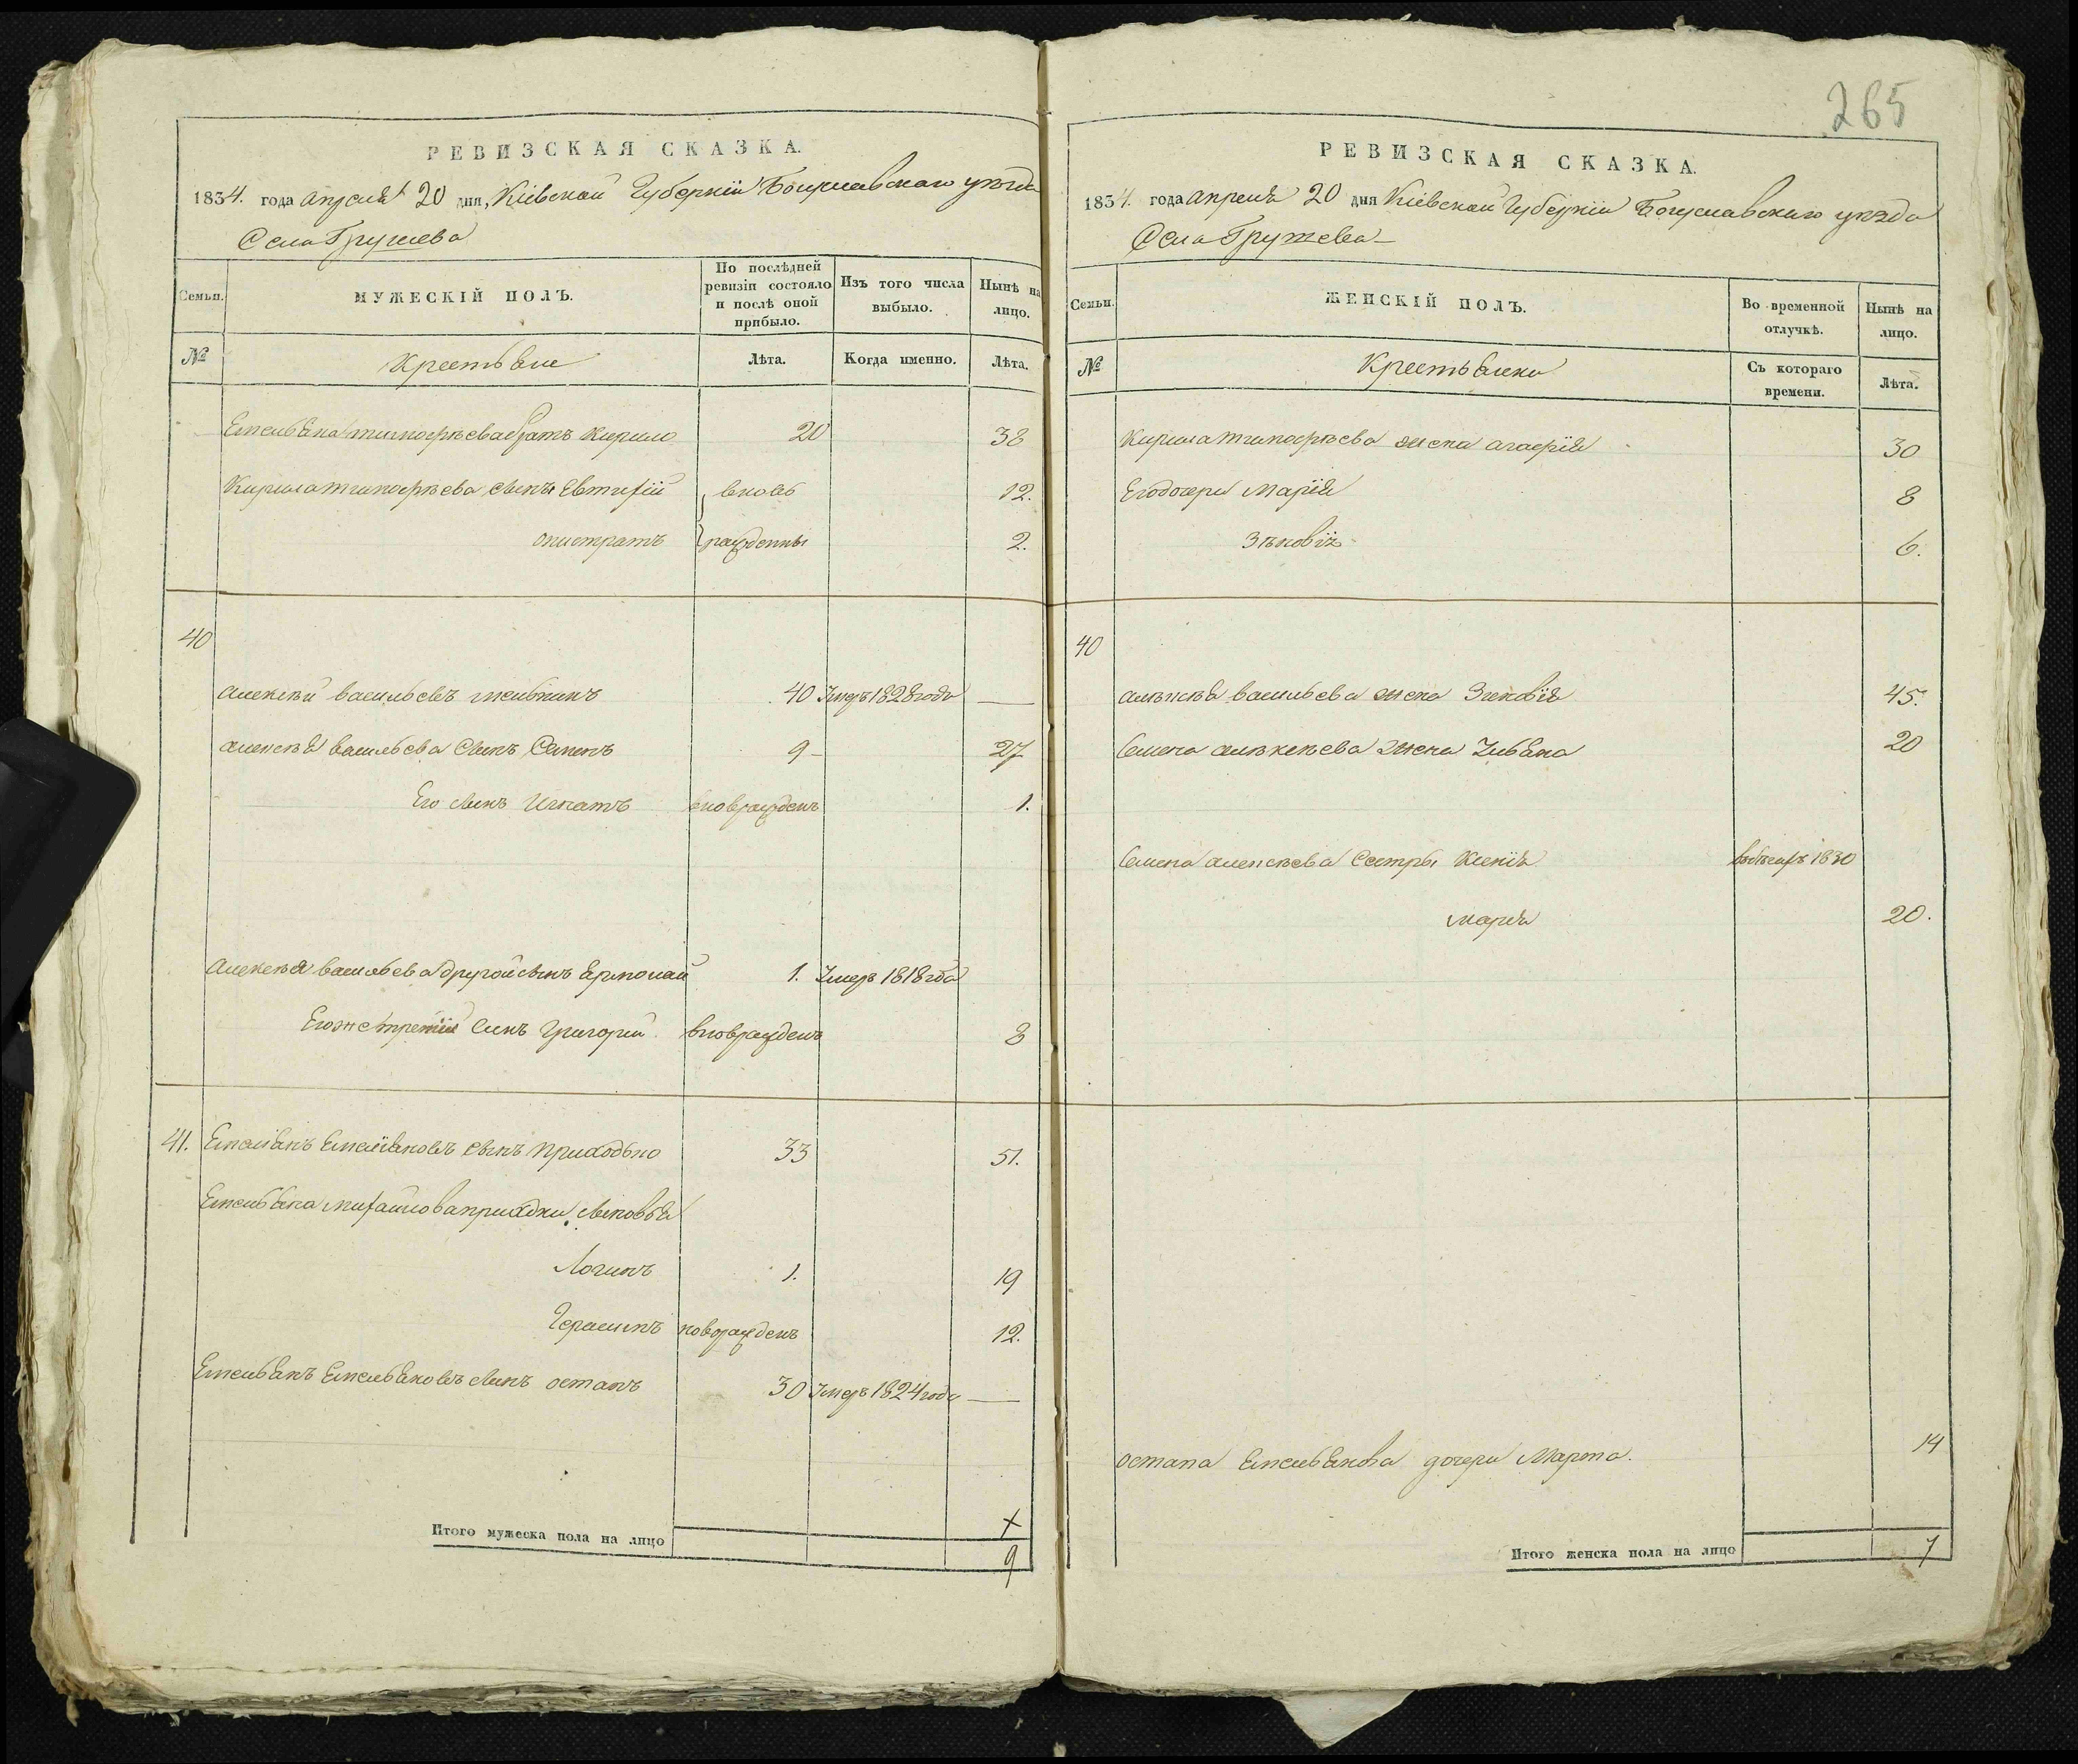 265
РЕВИЗСКАЯ СКАЗКА.
1834. года апреля 20 дня, Кіевской Губерніи Богуславскаго уѣзда
Села Грушева
Семьи.
МУЖЕСКІЙ ПОЛЪ.
По послѣдней ревизіи состояло и послѣ оной прибыло.
Изъ того числа выбыло.
Нынѣ на лицо.
№
Крестьяне
Лѣта.
Когда именно.
Лѣта.
Емельяна тимофѣева братъ Кирило 20 38
Кирила тимофѣева сынъ Евтифій вновь 12.
онистратъ рожденны 2.
40
Алексѣй васильевъ 40 Умеръ 1828 года —
алексѣя васильева Сынъ Семенъ 9 27
Его сынъ Игнатъ вноврожденъ 1.
Алексея васильева другой сынъ Ермолай 1. Умеръ 1818 года
Егоже третій Синъ Григорій вноврожденъ 8
41. Емелянъ Емеляновъ сынъ Приходько 33 51.
Емельяна приходки сыновья
Логинъ 1. 19
Герасимъ новорожденъ 12.
Емельянъ Емельяновъ сынъ остапъ 30 Умеръ 1824 года —
Итого мужеска пола на лицо 9
РЕВИЗСКАЯ СКАЗКА.
1834. года апреля 20 дня Кіевской Губерніи Богуславского уѣзда
Села Грушева
Семьи.
ЖЕНСКІЙ ПОЛЪ.
Во временной отлучкѣ.
Нынѣ на лицо.
№
Крестьянки
Съ котораго времени.
Лѣта.
Кирила тимофѣева жена агафія 30
Его дочери Марія 8
Зѣновія 6.
40
алѣксѣя васильева жена Зиновія 45.
Семена алѣксѣева жена Ульяна 20
Семена алексѣева Сестры Ксенія 1830
Марія 20.
остапа Емельянова дочери Марта. 14
Итого женска пола на лицо 7